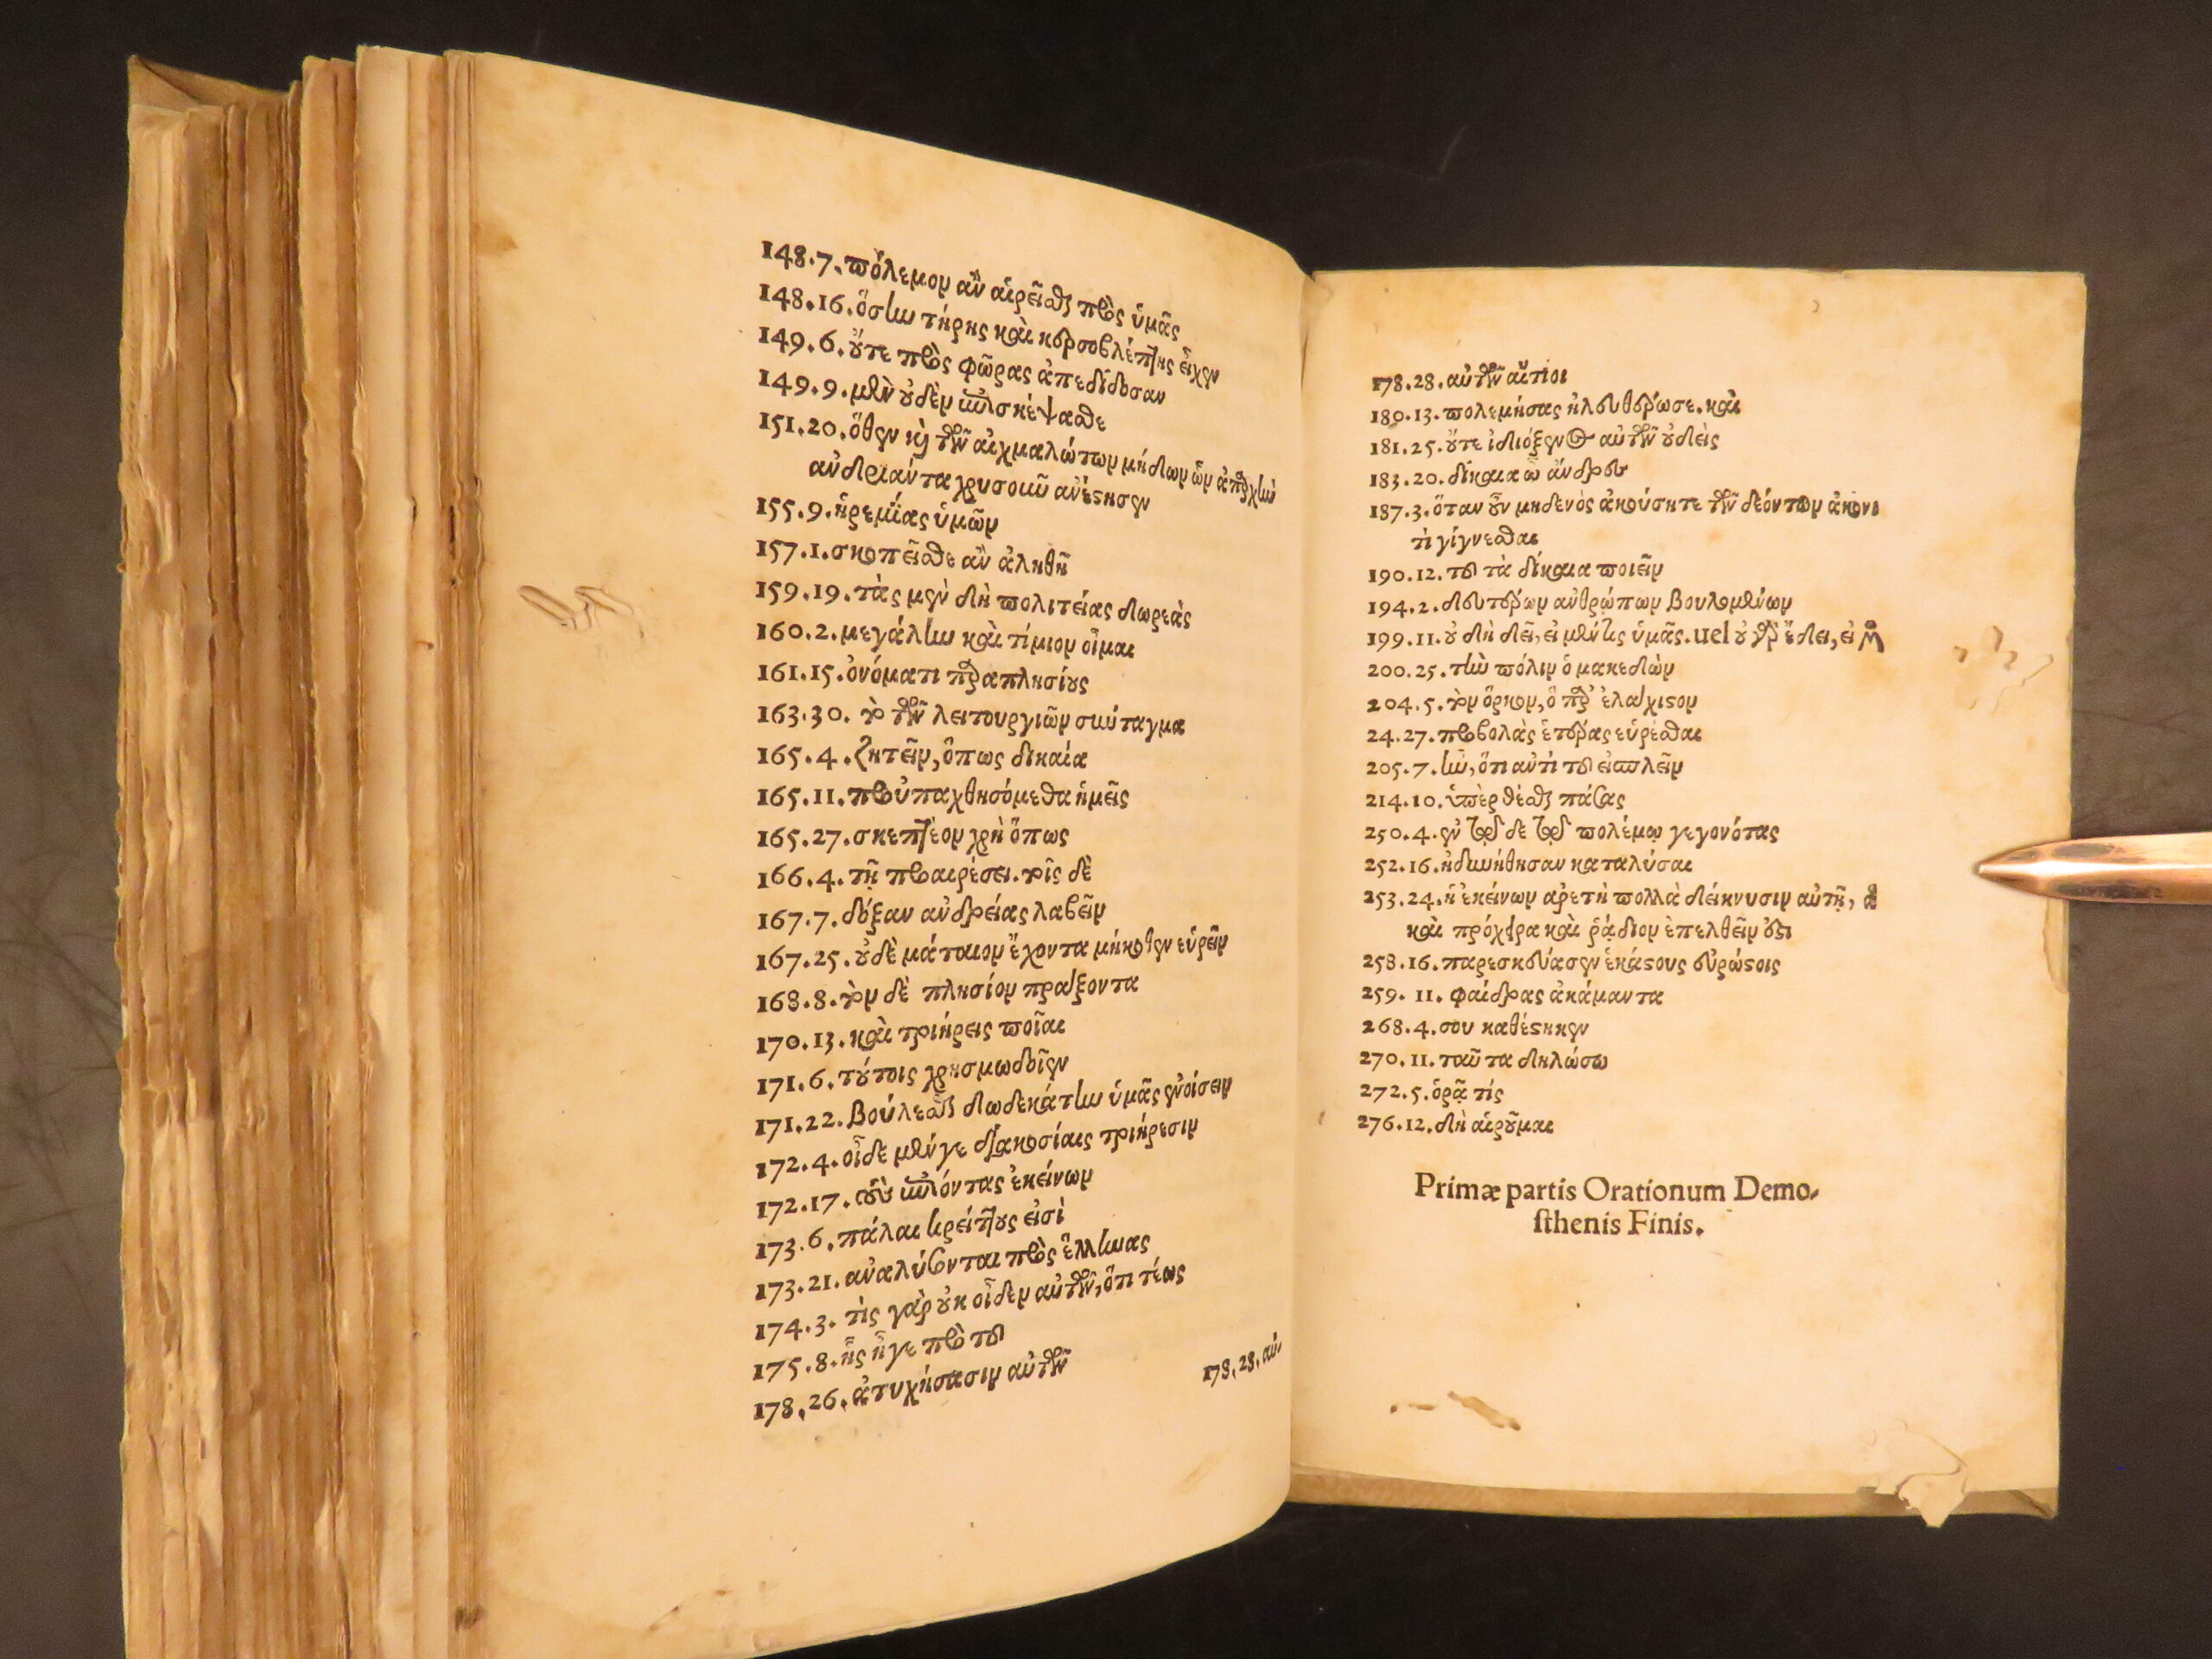 148.7. πόλεμον ἂν αἱρεῖσθαι πρὸς ὑμᾶς
148.16. ὅσην τήρης καὶ κερσοβλέπτης εἶχεν
149.6. οὔτε πρὸς φῶρας ἀπεδίδοσαν
149.9. μὲν οὐδὲν ἐπισκέψασθε
151.20. ὅθεν καὶ τῶν αἰχμαλώτων μήδων ὧν ἀπαρχὴν
ἀνδριάντα χρυσοῦν ἀνέστησεν
155.9. ἠρεμίας ὑμῶν
157.1. σκοπεῖσθε ἂν ἀληθῆ
159.19. τὰς μὲν δὴ πολιτείας δωρεὰς
160.2. μεγάλην καὶ τίμιον οἶμαι
161.15. ὀνόματι παραπλησίους
163.30. τὸ τῶν λειτουργιῶν σύνταγμα
165.4. ζητεῖν, ὅπως δικαία
165.11. προϋπαχθησόμεθα ἡμεῖς
165.27. σκεπτέον χρὴ ὅπως
166.4. τῇ προαιρέσει. τοῖς δὲ
167.7. δόξαν ἀνδρείας λαβεῖν
167.25. οὐδὲ μάταιον ἔχοντα μήκοθεν εὑρεῖν
168.8. τὸν δὲ πλησίον πράξοντα
170.13. καὶ τριήρεις ποῖαι
171.6. τούτοις χρησμωδοῖεν
171.22. βούλεσθαι δωδεκάτην ὑμᾶς ἐνοίσειν
172.4. οἶδε μέν γε διακοσίαις τριήρεσιν
172.17. τοὺς ἐπιόντας ἐκείνων
173.6. πάλαι κρείττους εἰσὶ
173.21. ἀναλύσονται πρὸς ἕλληνας
174.3. τίς γὰρ οὐκ οἶδεν αὐτῶν, ὅτι τέως
175.8. ἧς ἦγε πρὸ τοῦ
178.26. ἀτυχήσασιν αὐτῶν
178.28. αὐ-
178.28. αὐτῶν αἴτιοι
180.13. πολεμήσας ἠλευθέρωσε. καὶ
181.25. οὔτε ἰδιόξενος αὐτῶν οὐδεὶς
183.20. δίκαια ὦ ἄνδρες
187.3. ὅταν οὖν μηδενὸς ἀκούσητε τῶν δεόντων ἀκονι
τὶ γίγνεσθαι
190.12. τοῦ τὰ δίκαια ποιεῖν
194.2. δευτέρων ἀνθρώπων βουλομένων
199.11. οὐ δὴ δεῖ, εἰ μέν τις ὑμᾶς. uel οὐ γὰρ ἔδει, εἰ μὲν
200.25. τὴν πόλιν ὁ μακεδὼν
204.5. τὸν ὅρκον, ὃ παρ' ἐλάχιστον
24.27. προβολὰς ἑτέρας εὑρέσθαι
205.7. ἦν, ὅτι ἀντὶ τοῦ εἰσπλεῖν
214.10. ὑπερθέσθαι πάσας
250.4. ἐν τῷδε τῷ πολέμῳ γεγονότας
252.16. ἠδυνήθησαν καταλύσαι
253.24. ἡ ἐκείνων ἀρετὴ πολλὰ δείκνυσιν αὐτῇ, ἃ
καὶ πρόχειρα καὶ ῥᾴδιον ἐπελθεῖν ἐστι
258.16. παρεσκεύασεν ἑκάστους εὐρώστοις
259.11. φαίδρας ἀκάμαντα
268.4. σου καθέστηκεν
270.11. ταῦτα δηλώσω
272.5. ὁρᾷ τίς
276.12. δὴ αἱροῦμαι
Primæ partis Orationum Demo-
sthenis Finis.